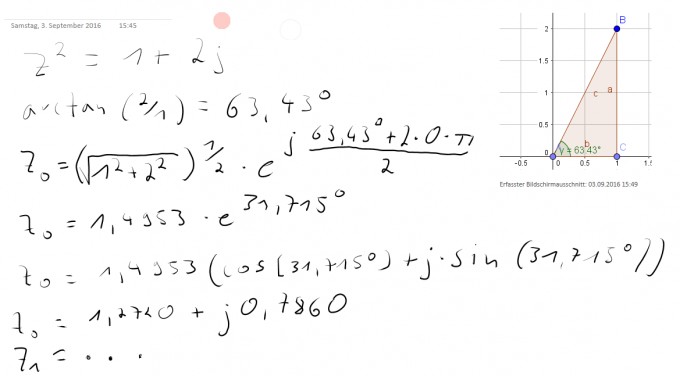 Samstag, 3. September 2016 15:45
z² = 1 + 2j
arctan (2/1) = 63,43°
z₀ = (√(1² + 2²))^(1/2) · e^(j (63,43° + 2·0·π)/2)
z₀ = 1,4953 · e^(31,715°)
z₀ = 1,4953 (cos(31,715°) + j · sin (31,715°))
z₀ = 1,2720 + j0,7860
z₁ = . . .
B
2
1.5
c a
1
0.5
γ = 63.43° b C
0
-0.5 0 0.5 1 1.5
Erfasster Bildschirmausschnitt: 03.09.2016 15:49